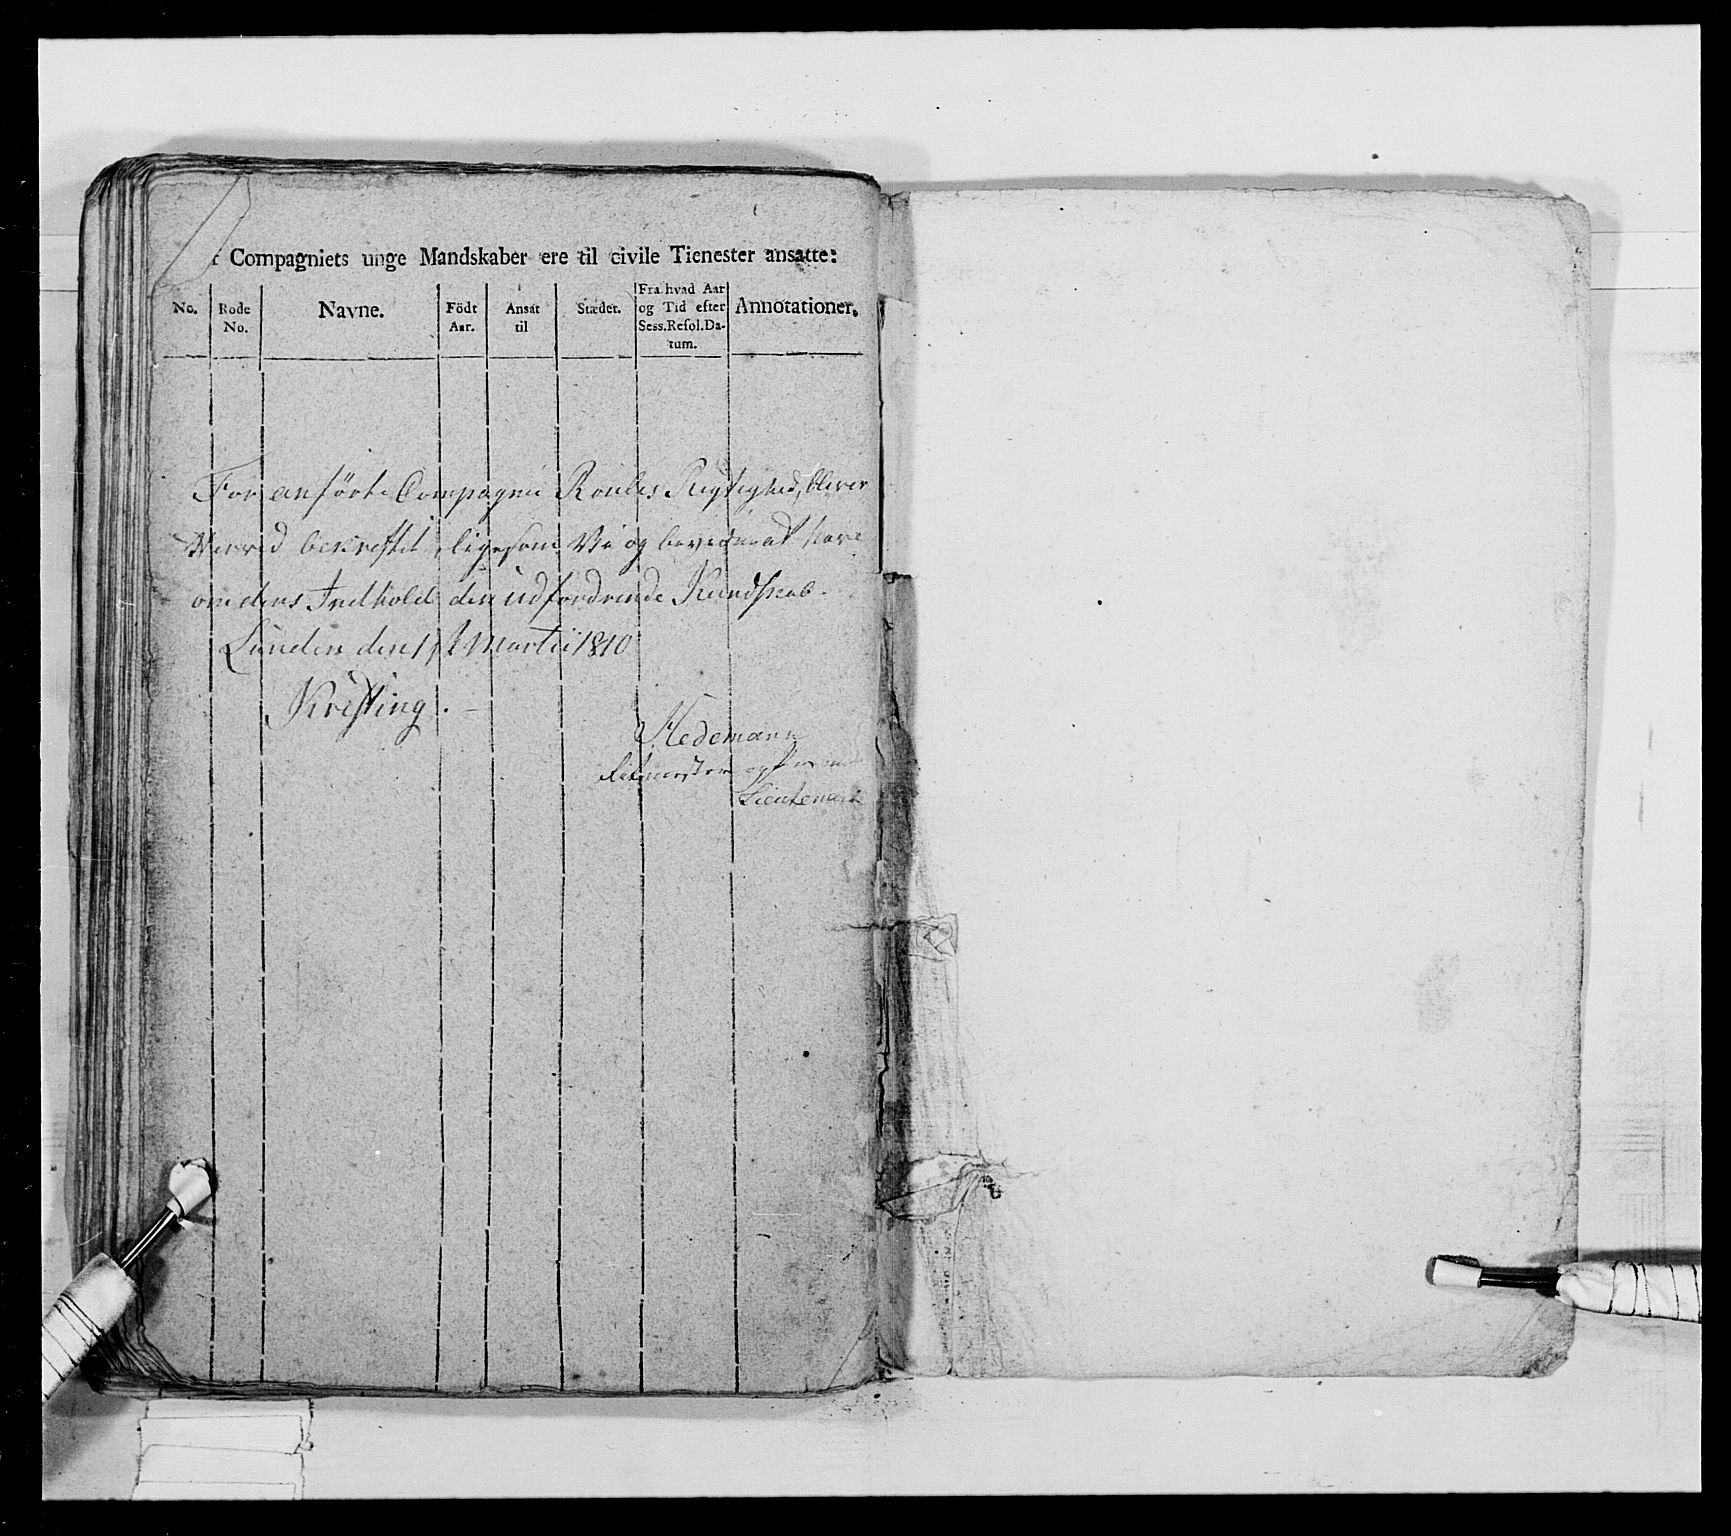 Compagniets unge Mandskaber ere til civile Tienester ansatte:
No.
Rode No.
Navne.
Födt Aar.
Ansat til
Stædet.
Fra hvad Aar og Tid efter Sess.Resol.Datum.
Annotationer.
For anförte Compagnie Roules Rigtighed, bliver
Herved bekreftet, ligesom Vi og bevidne at have
om dens Indhold den udfordrende Kundskab.
Lunden den Martii 1810
Kristing.
Hedemann
og Premier
Lieutenant